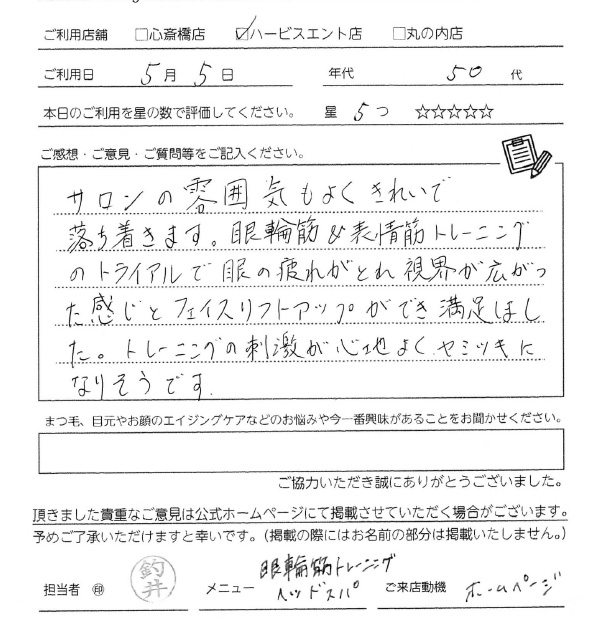 ご利用店舗 □心斎橋店 ☑ハービスエント店 □丸の内店
ご利用日 5月5日 年代 50代
本日のご利用を星の数で評価してください。 星 5つ ☆☆☆☆☆
ご感想・ご意見・ご質問等をご記入ください。
サロンの雰囲気もよくきれいで
落ち着きます。眼輪筋&表情筋トレーニング
のトライアルで眼の疲れがとれ視界が広がっ
た感じとフェイスリフトアップができ満足ほし
た。トレーニングの刺激が心地よくヤミツキに
なりそうです.
まつ毛、目元やお顔のエイジングケアなどのお悩みや今一番興味があることをお聞かせください。
ご協力いただき誠にありがとうございました。
頂きました貴重なご意見は公式ホームページにて掲載させていただく場合がございます。
予めご了承いただけますと幸いです。(掲載の際にはお名前の部分は掲載いたしません。)
眼輪筋トレーニング
担当者 ㊞ 釣井 メニュー ヘッドスパ ご来店動機 ホームページ